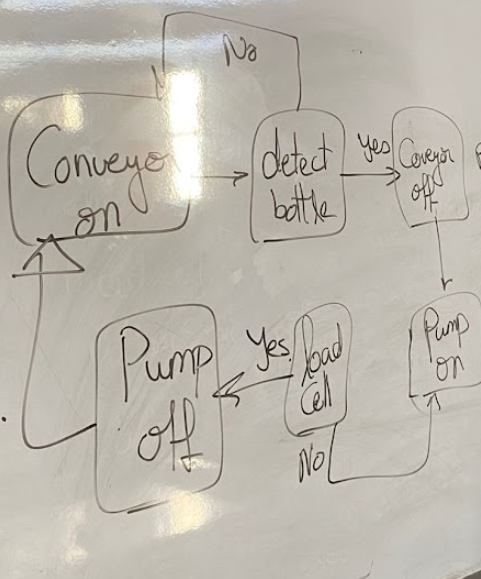 No
Conveyor
on
detect
bottle
yes
Conveyor
off
Pump
on
load
Cell
Yes
No
Pump
off